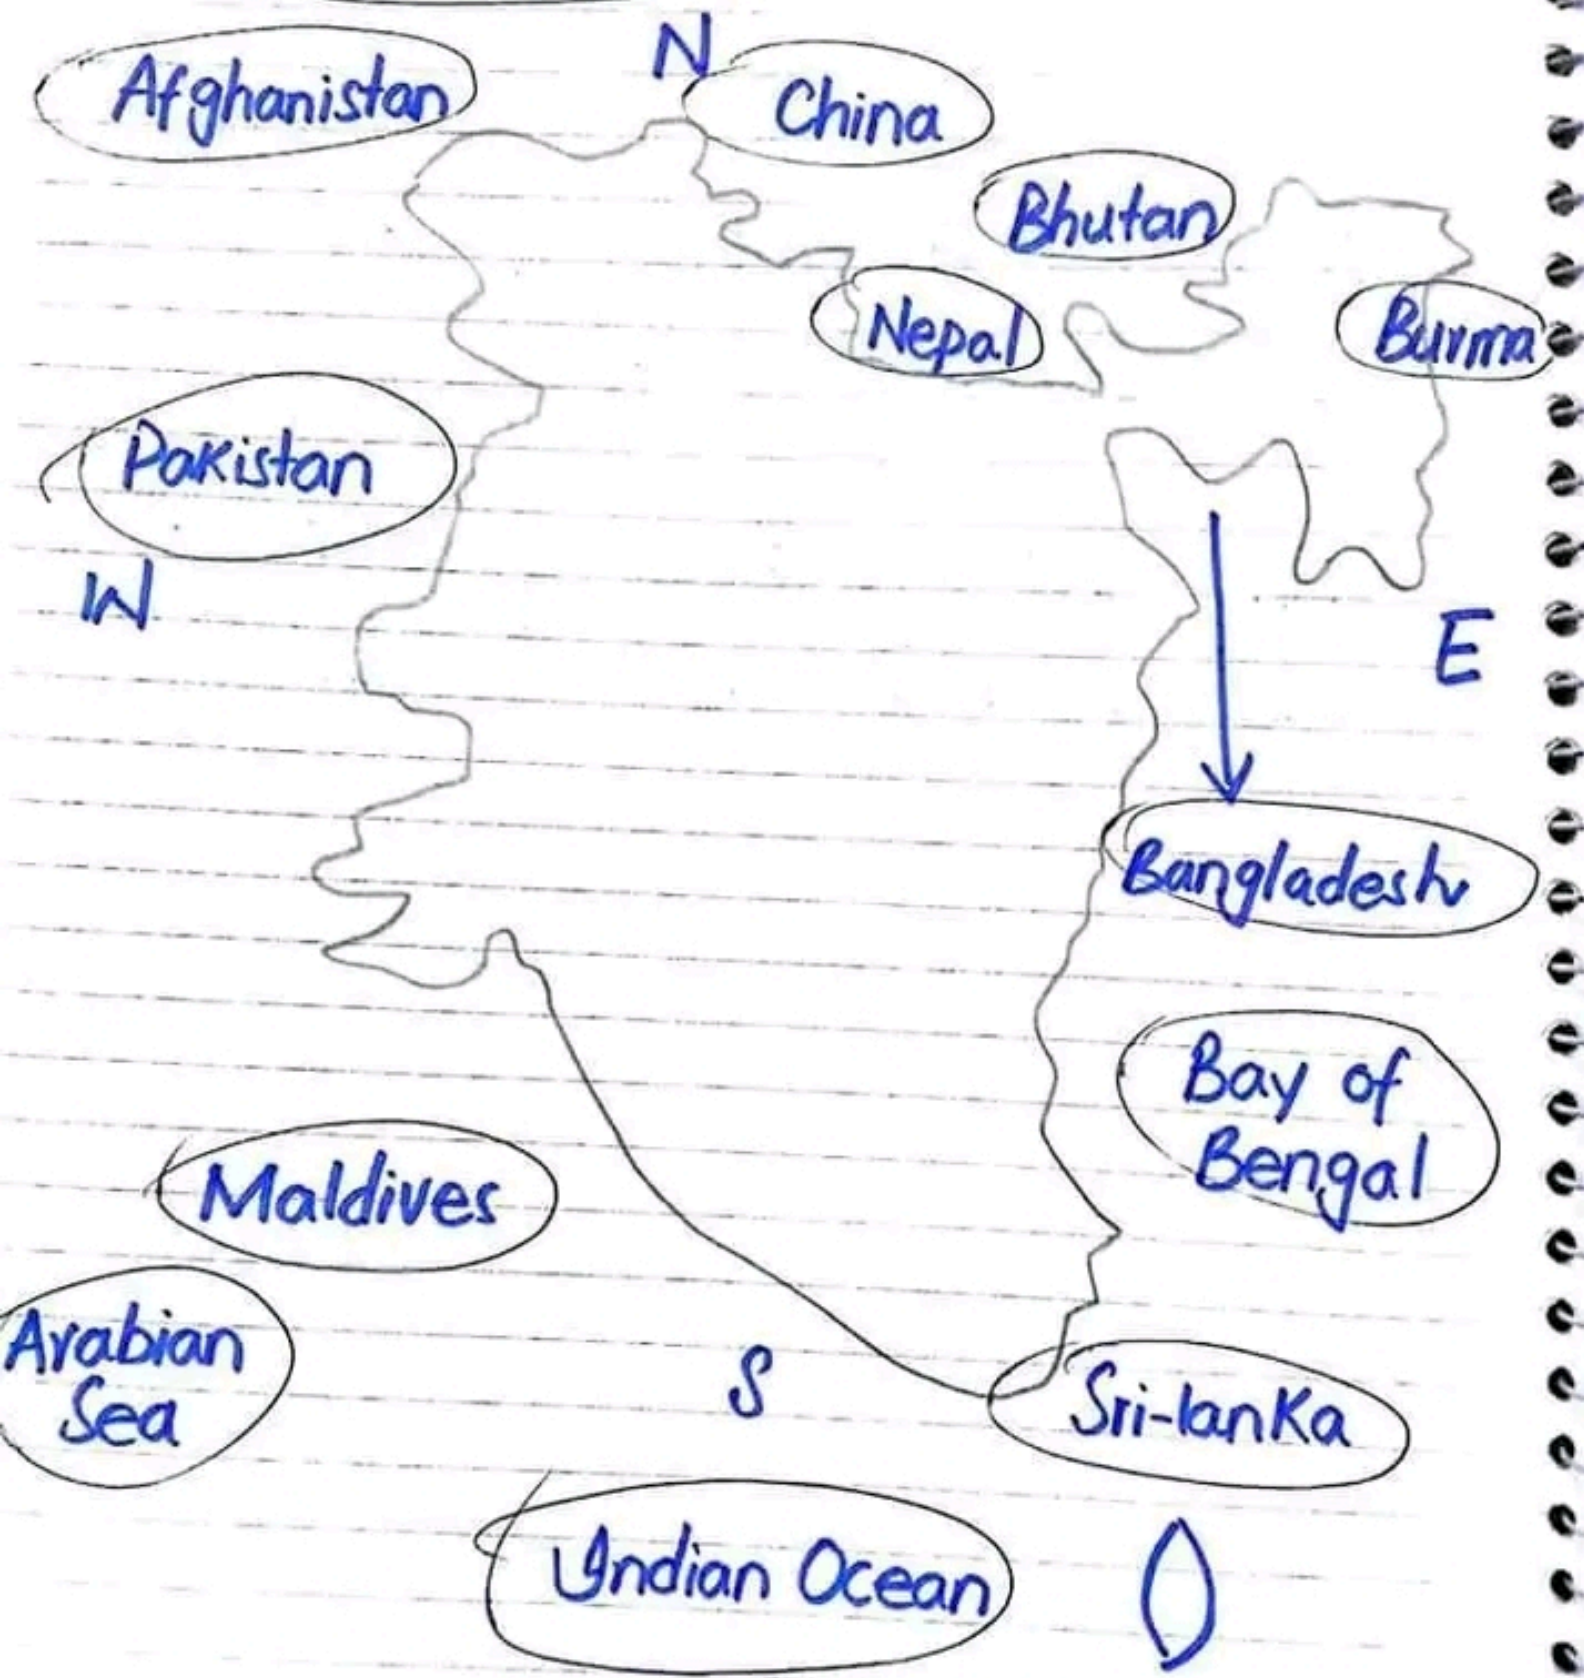 N
Afghanistan
China
Bhutan
Nepal
Burma
Pakistan
W
E
Bangladesh
Bay of
Bengal
Maldives
Arabian
Sea
S
Sri-lanka
Indian Ocean